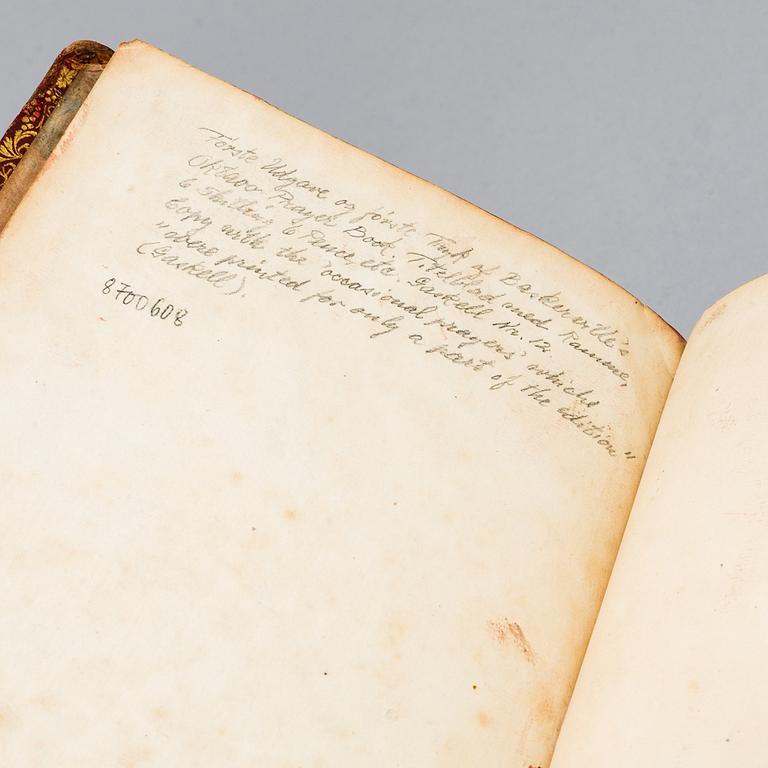 Første Udgave og første Tryk af Baskerville's
Oktavo Prayer Book, Titelblad med Ramme,
6 Shilling 6 Pence etc. Gaskell Nr. 12.
Copy with the "occasional prayers" which
"were printed for only a part of the edition"
(Gaskell).
8700608